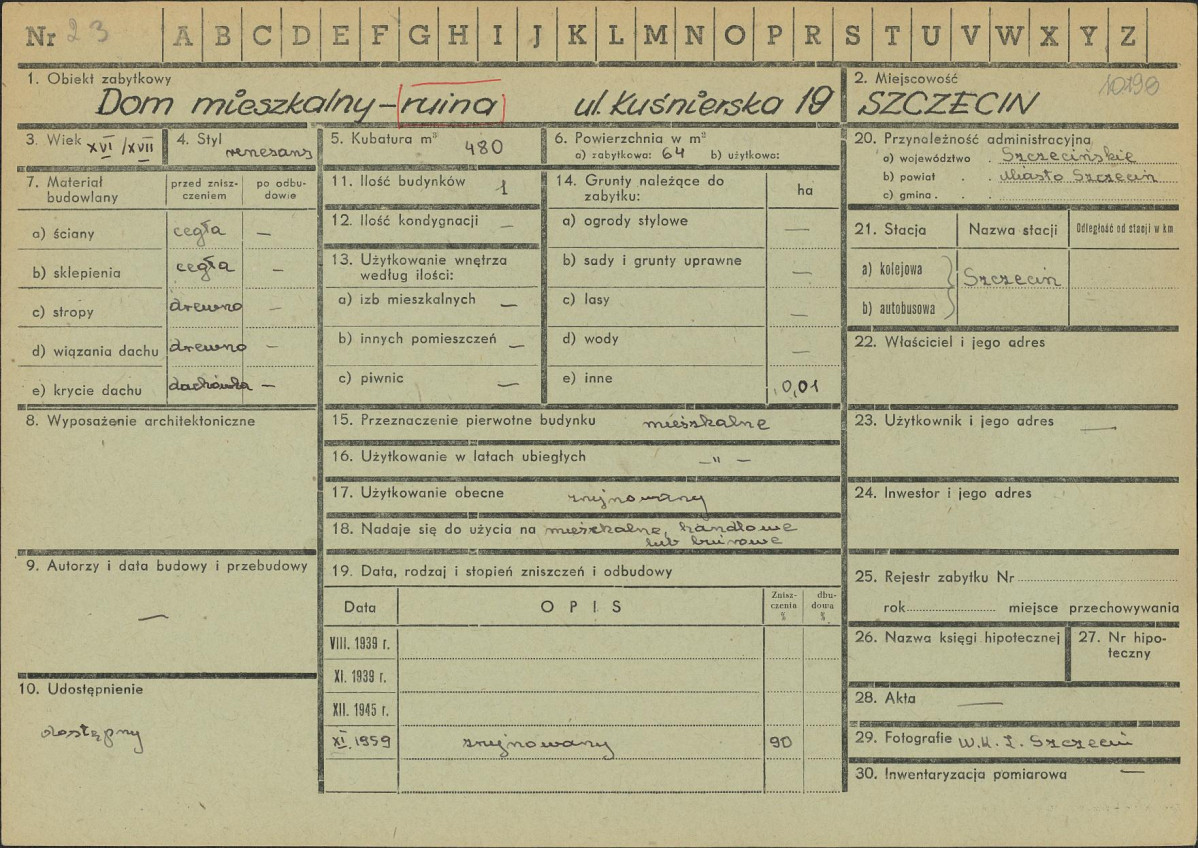 Nr 23 A B C D E F G H I J K L M N O P R S T U V W X Y Z
1. Obiekt zabytkowy
Dom mieszkalny – ruina ul. Kuśnierska 19
2. Miejscowość 10198
SZCZECIN
3. Wiek XVI/XVII
4. Styl renesans
5. Kubatura m³ 480
6. Powierzchnia w m²
a) zabytkowa: 64 b) użytkowa:
7. Materiał budowlany
przed zniszczeniem
po odbudowie
a) ściany cegła —
b) sklepienia cegła —
c) stropy drewno —
d) wiązania dachu drewno —
e) krycie dachu dachówka —
8. Wyposażenie architektoniczne
9. Autorzy i data budowy i przebudowy
—
10. Udostępnienie
dostępny
11. Ilość budynków 1
12. Ilość kondygnacji —
13. Użytkowanie wnętrza
według ilości:
a) izb mieszkalnych —
b) innych pomieszczeń —
c) piwnic —
14. Grunty należące do
zabytku: ha
a) ogrody stylowe —
b) sady i grunty uprawne —
c) lasy —
d) wody —
e) inne 0,01
15. Przeznaczenie pierwotne budynku mieszkalne
16. Użytkowanie w latach ubiegłych —"—
17. Użytkowanie obecne zrujnowany
18. Nadaje się do użycia na mieszkalne, handlowe
lub biurowe
19. Data, rodzaj i stopień zniszczeń i odbudowy
Data OPIS Zniszczenia % dbudowa %
VIII. 1939 r.
XI. 1939 r.
XII. 1945 r.
XI. 1959 zrujnowany 90
20. Przynależność administracyjna
a) województwo . Szczecińskie
b) powiat . . miasto Szczecin
c) gmina . . .
21. Stacja Nazwa stacji Odległość od stacji w km
a) kolejowa
Szczecin —
b) autobusowa
22. Właściciel i jego adres
23. Użytkownik i jego adres —
24. Inwestor i jego adres
25. Rejestr zabytku Nr
rok miejsce przechowywania
26. Nazwa księgi hipotecznej
27. Nr hipoteczny
28. Akta —
29. Fotografie W.K.Z. Szczecin
30. Inwentaryzacja pomiarowa —